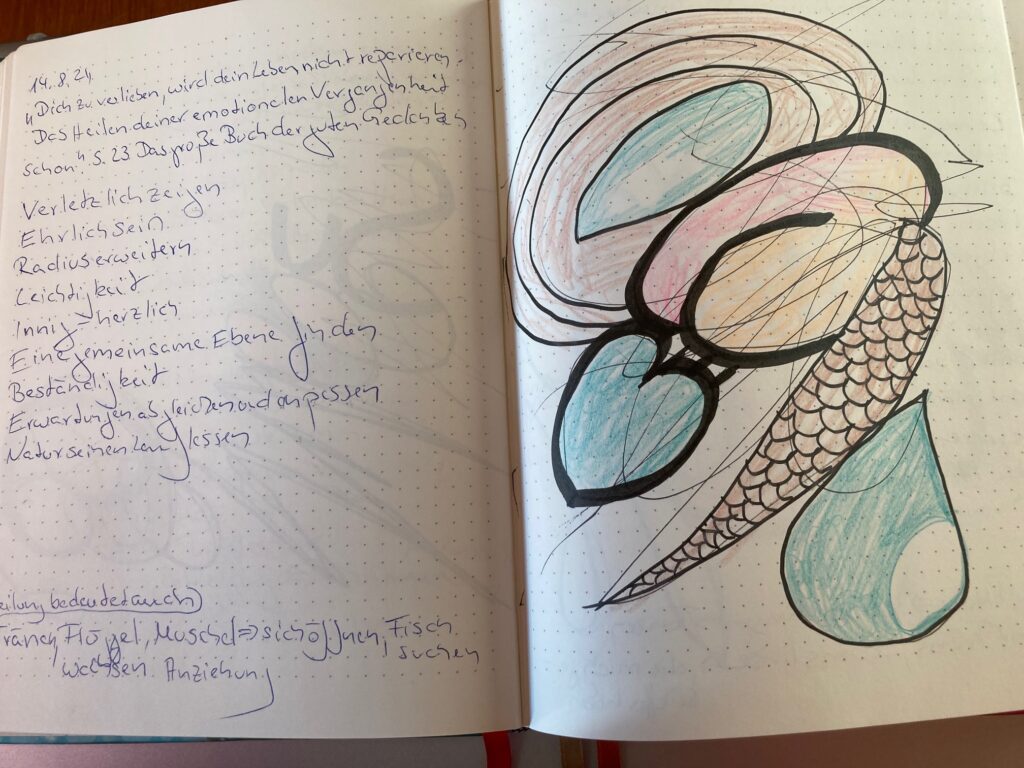 14.8.24
"Dich zu verlieben, wird dein Leben nicht reparieren.
Das Heilen deiner emotionalen Vergangenheit
schon". S. 23 Das große Buch der guten Gedanken.
Verletzlich zeigen
Ehrlich sein
Radius erweitern
Leichtigkeit
Innig - herzlich
Eine gemeinsame Ebene finden
Beständigkeit
Erwartungen abgleichen und anpassen
Natur seinen Lauf lassen
eilung bedeutet auch)
Tränen, Flügel, Muschel => sich öffnen, Fisch
wachsen. Anziehung suchen